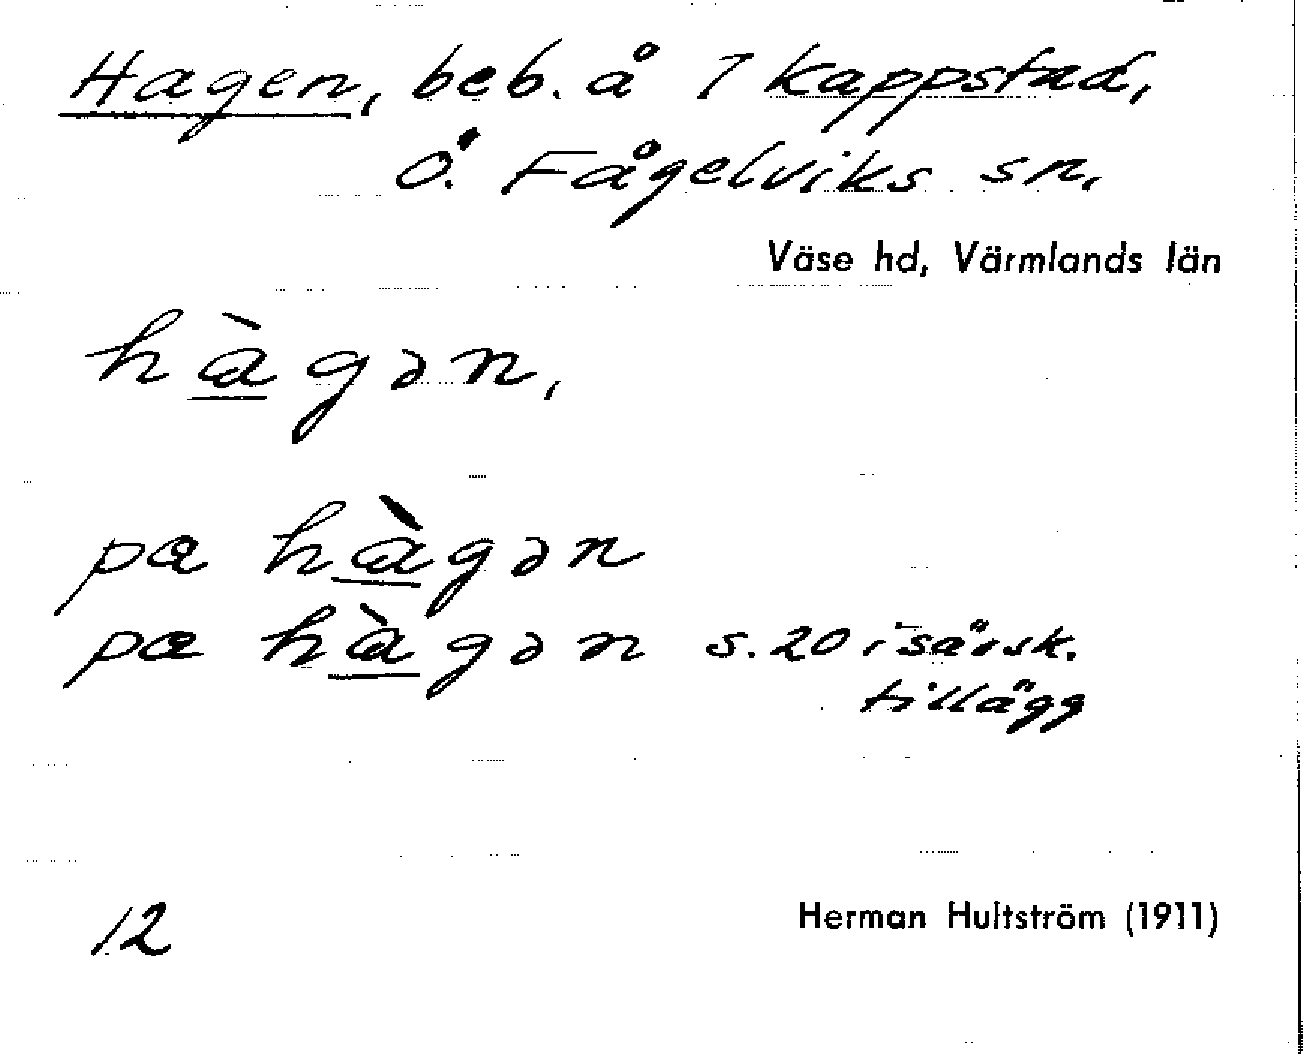 Hagen, beb. å 1 Kappstad,
Ö. Fågelviks sn.
Väse hd, Värmlands län
hàgən,
pa hàgən
pa hàgən s. 20 i särsk.
tillägg
12
Herman Hultström (1911)